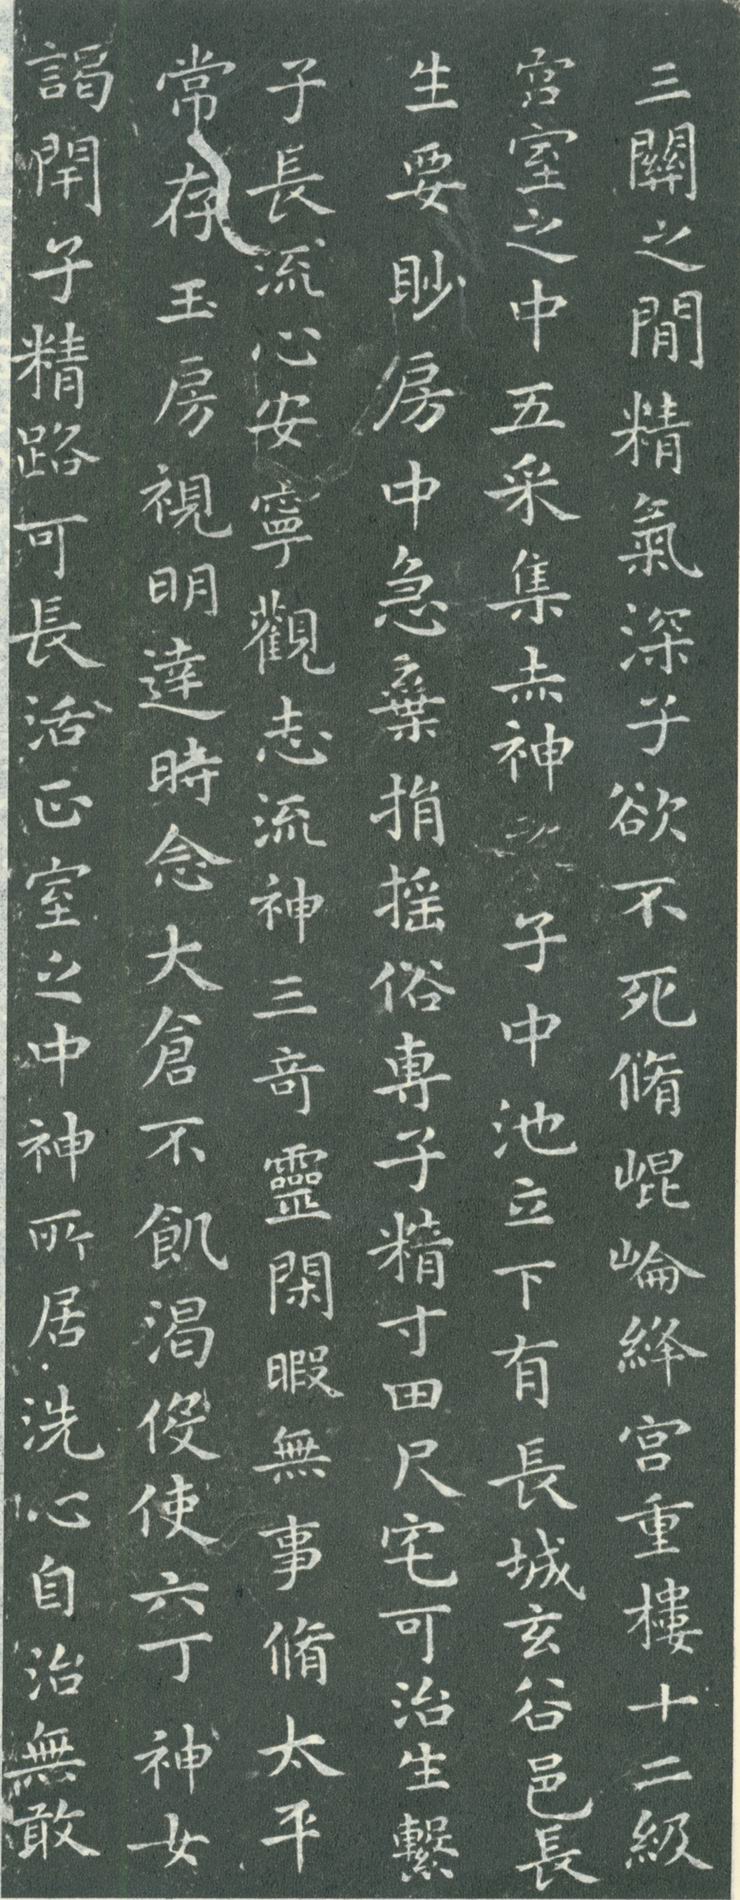 三關之間精氣深子欲不死脩崐崘絳宮重樓十二級
宮室之中五采集赤神子中池立下有長城玄谷邑長
生要眇房中急棄捐摇俗專子精寸田尺宅可治生繫
子長流心安寧觀志流神三奇靈閑暇無事脩太平
常存玉房視明達時念大倉不飢渴役使六丁神女
謁閉子精路可長活正室之中神所居洗心自治無敢